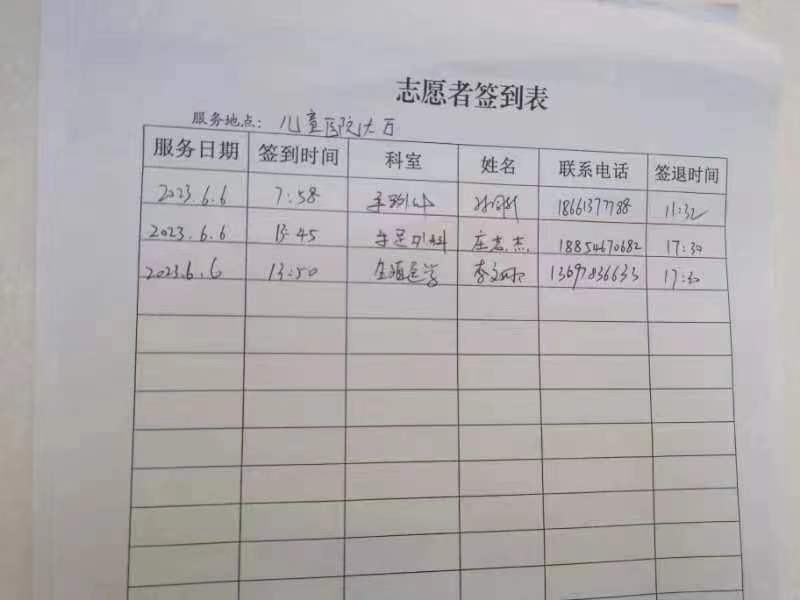 志愿者签到表
服务地点：儿童医院大厅
服务日期 签到时间 科室 姓名 联系电话 签退时间
2023.6.6 7:58 18661377788 11:32
2023.6.6 13:45 手足外科 庄志杰 18854670682 17:30
2023.6.6 13:50 生殖医学 李文 13697836633 17:30